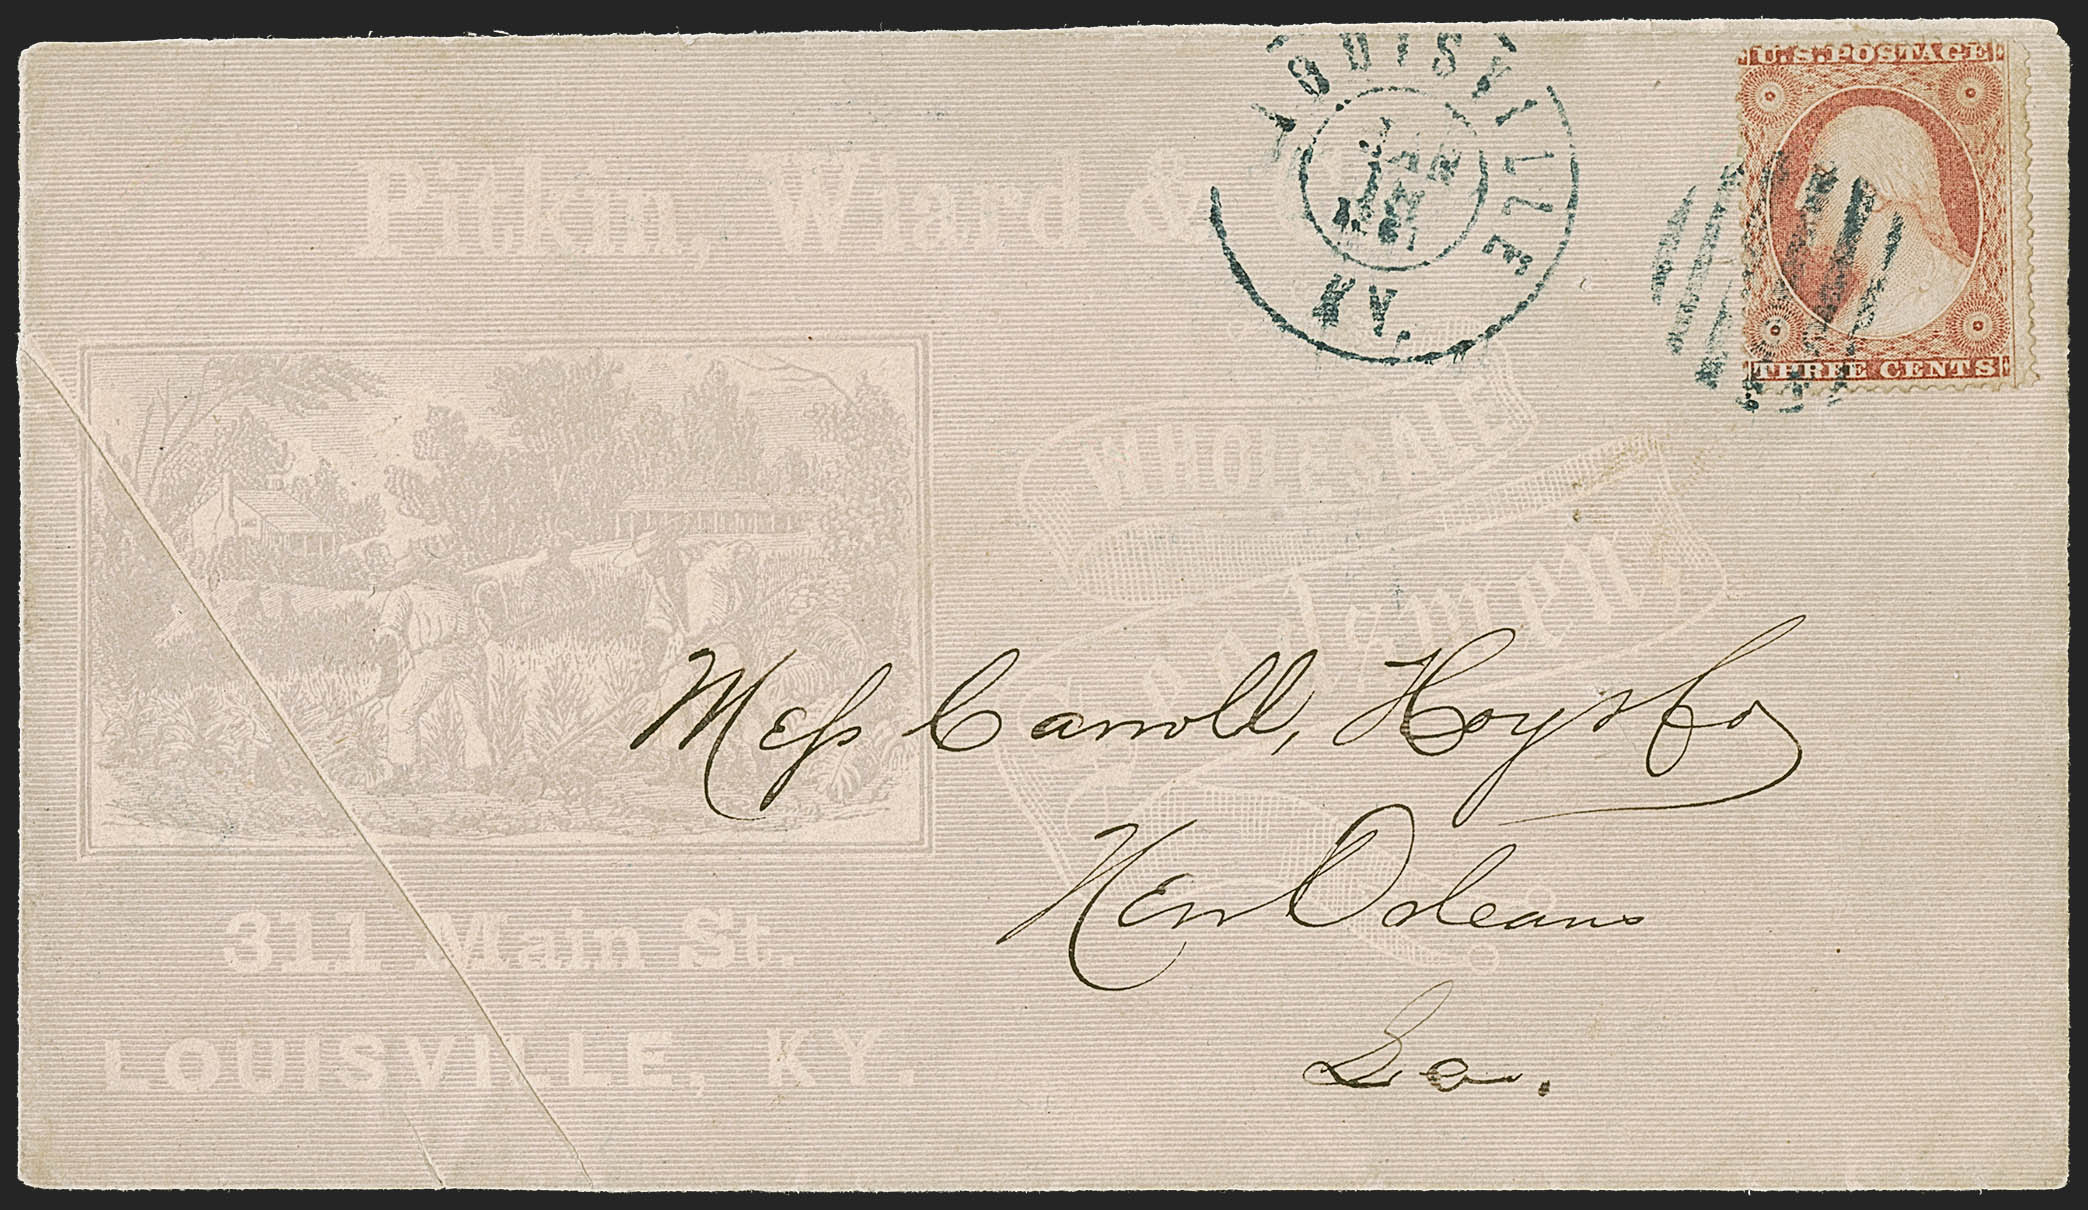 U.S. POSTAGE
THREE CENTS
LOUISVILLE
KY.
JAN
18
Pitkin, Wiard & Co
WHOLESALE
Seedsmen,
311 Main St.
LOUISVILLE, KY.
Mess Carroll, Hoy & Co
New Orleans
La.